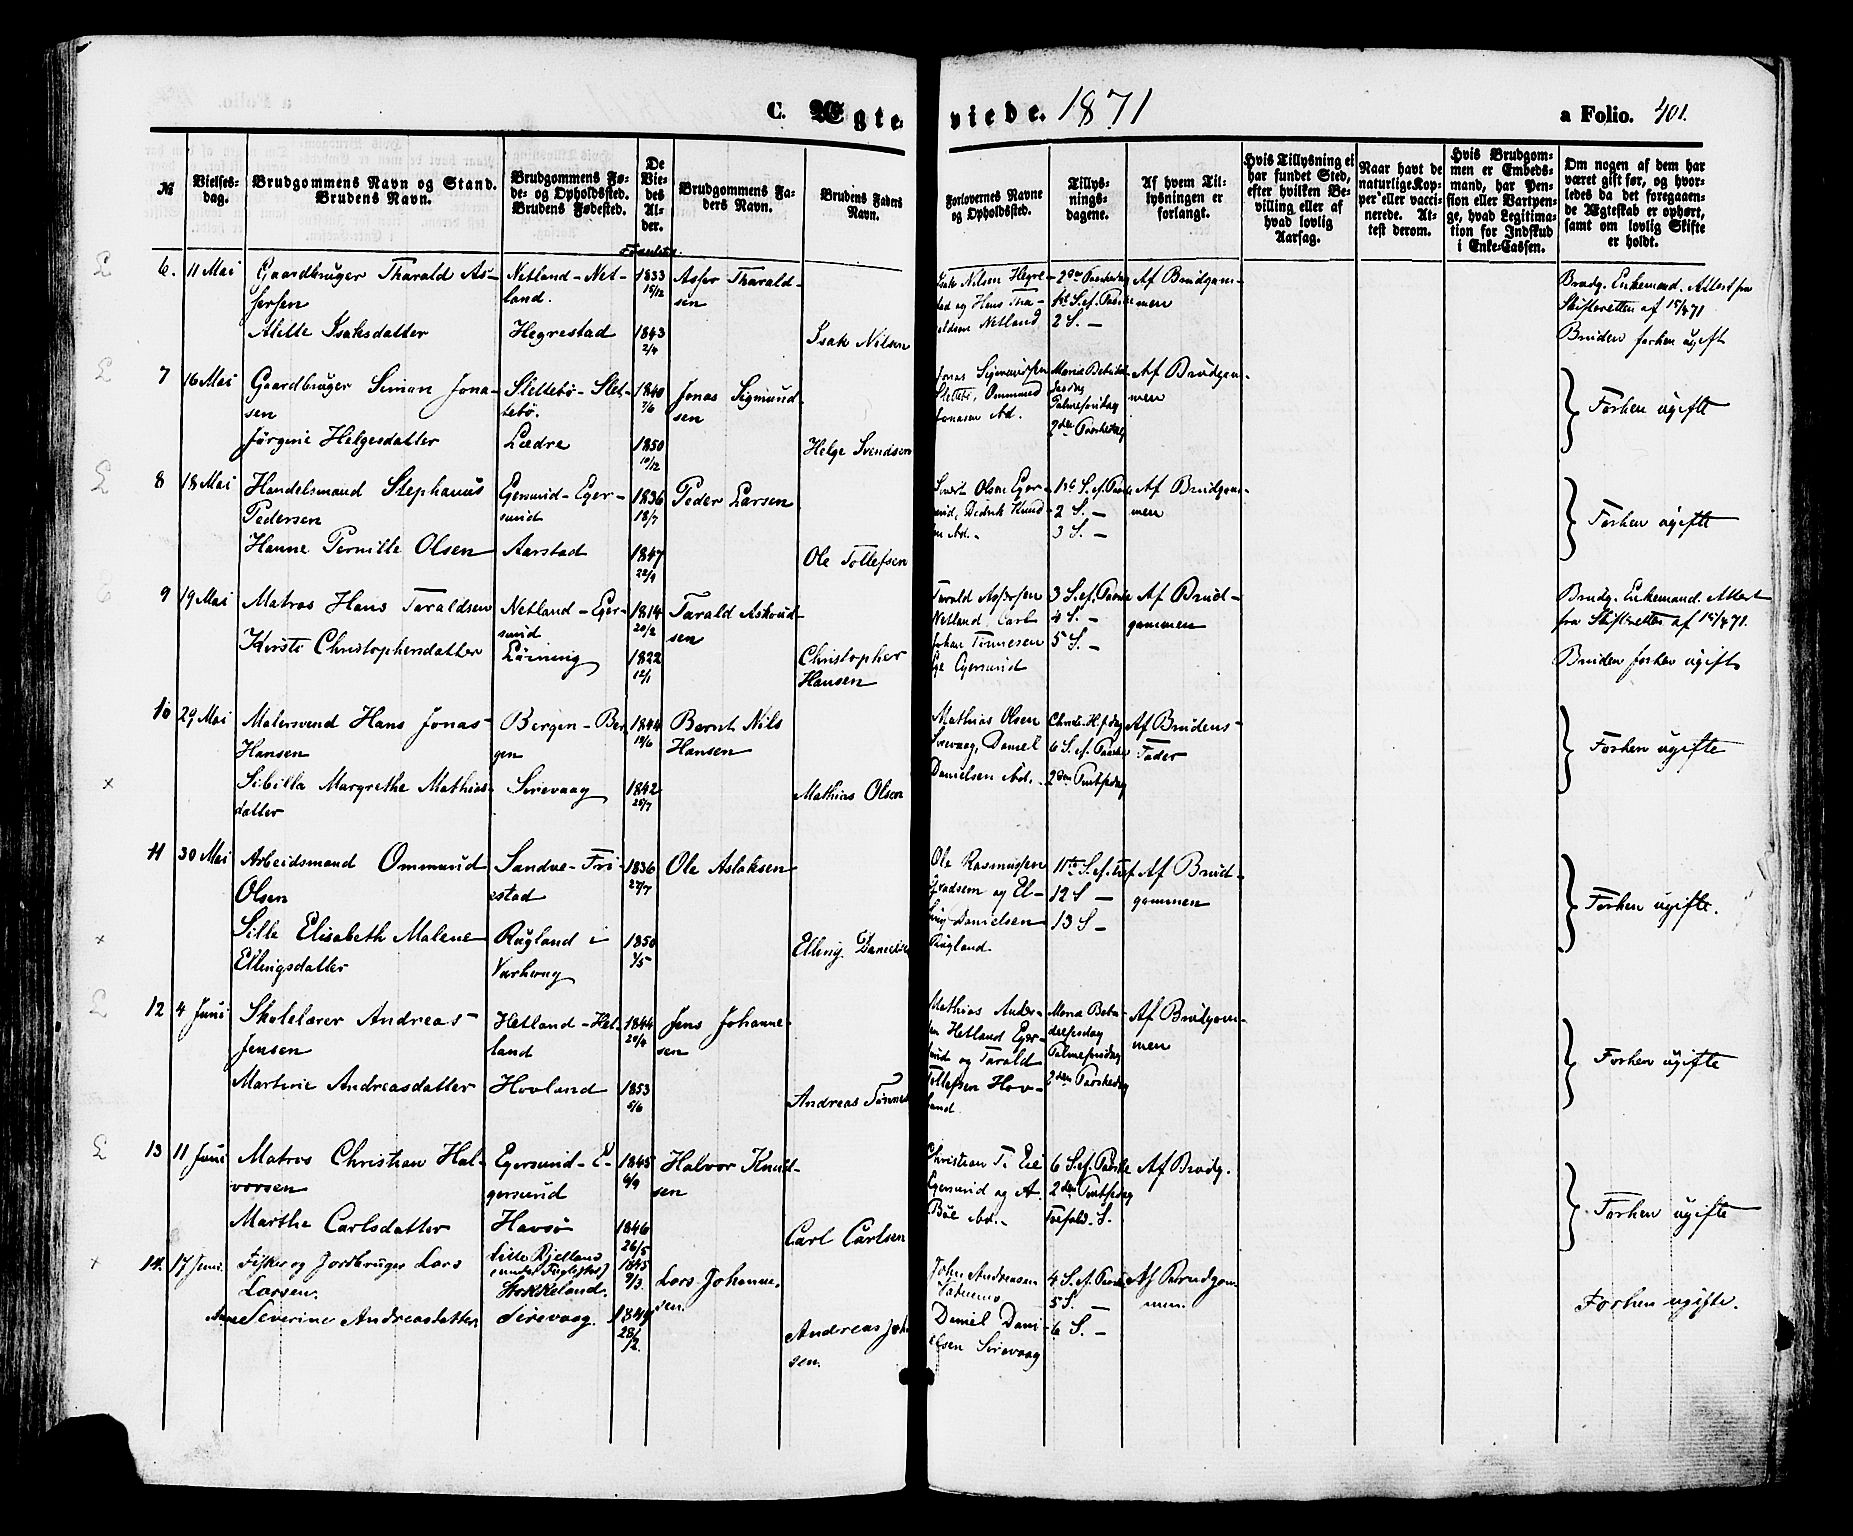 C. Ægteviede. 1871
a Folio. 401.
№
Vielses-
dag.
Brudgommens Navn og Stand.
Brudens Navn.
Brudgommens Fø-
de- og Opholdssted.
Brudens Fødested.
De
Vie-
des
Al-
der.
Brudgommens Fa-
ders Navn.
Brudens Faders
Navn.
Forlovernes Navne
og Opholdssted.
Tillys-
nings-
dagene.
Af hvem Til-
lysningen er
forlangt.
Hvis Tillysning ei
har fundet Sted,
efter hvilken Be-
villing eller af
hvad lovlig
Aarsag.
Naar havt de
naturlige Kop-
per eller vacci-
nerede. At-
test derom.
Hvis Brudgom-
men er Embeds-
mand, har Pen-
sion eller Vartpen-
ge, hvad Legitima-
tion for Indskud
i Enke-Cassen.
Om nogen af dem har
været gift før, og hvor-
ledes da det foregaaen-
de Ægteskab er ophørt,
samt om lovlig Skifte
er holdt.
6. 11 Mai
Gaardbruger Tharald As-
sersen
Alette Isaksdatter
Netland - Net-
land.
Hegrestad
1833
15/12
1843
2/4
Asser Tharald-
sen
Isak Nilsen
Isak Nilsen Hegre-
stad og Hans Tha-
raldsen Netland
2den Paaskedag
1ste S. ef. Paaske
2 S. —
Af Brudgom-
men
Brudg. Enkemand. Attest fra
Skifteretten af 15/4 71
Bruden forhen ugift
7 16 Mai
Gaardbruger Simon Jona-
sen
Jørgine Helgesdatter
Slettebö - Slet-
tebö.
Lædre
1840
7/6
1850
10/12
Jonas Sigmund-
sen
Helge Svendsen
Jonas Sigmundsen
Slettebö, Ommund
Jonasen ibd.
Maria Bebudel-
sesdag
Palmesöndag
2den Paaskedag
Af Brudgom-
men
Forhen ugifte
8 18 Mai
Handelsmand Stephanus
Pedersen
Hanne Pernille Olsen
Egersund - Eger-
sund
Aarstad
1836
18/7
1847
22/9
Peder Larsen
Ole Tollefsen
Sivert Olsen Eger-
sund, Didrik Knud-
sen ibd. -
1ste S. ef. Paaske
2 S. —
3 S. —
Af Brudgom-
men
Forhen ugifte
9 19 Mai
Matros Hans Taraldsen
Kirste Christophersdatter
Netland - Eger-
sund
Löining
1814
20/2
1822
12/1
Tarald Askvid-
sen
Christopher
Hansen
Tarald Assersen
Netland, Carl
Johan Tönnesen
Eie Egersund
3 S. ef. Paaske
4 S. —
5 S. —
Af Brud-
gommen
Brudg. Enkemand. Attest
fra Skifteretten af 15/4 71.
Bruden forhen ugift
10 29 Mai
Malersvend Hans Jonas
Hansen
Sibilla Margrethe Mathias-
datter
Bergen - Ber-
gen
Sirevaag
1844
19/6
1842
25/7
Bernt Nils
Hansen
Mathias Olsen
Mathias Olsen
Sirevaag, Daniel
Danielsen ibd.
Christi H.f.dag
6 S. ef. Paaske
2den Pintsedag
Af Brudens
Fader
Forhen ugifte
11 30 Mai
Arbeidsmand Ommund
Olsen
Sille Elisabeth Malene
Ellingsdatter
Sandve - Fri-
estad
Rugland i
Varhaug
1836
27/7
1850
7/5
Ole Aslaksen
Elling Danielsen
Ole Rasmussen
Gradsem og El-
ling Danielsen
Rugland
11te S. ef. Tref.
12 S —
13 S —
Af Brud-
gommen
Forhen ugifte.
12 4 Juni
Skolelærer Andreas
Jensen
Martine Andreasdatter
Hetland - Het-
land
Hovland
1844
20/4
1853
5/6
Jens Johanne-
sen
Andreas Tönnes
Mathias Ander-
sen Hetland Eger-
sund og Tarald
Tollefsen Hov-
land
Maria Bebu-
delsesdag
Palmesöndag
2den Paaskedag
Af Brudgom-
men
Forhen ugifte
13 11 Juni
Matros Christian Hal-
vorsen
Marthe Carlsdatter
Egersund - E-
gersund
Havsö
1845
9/9
1846
26/5
Halvor Knud-
sen
Carl Carlsen
Christian T. Eie
Egersund og A.
Böe ibd. -
6 S. ef. Paaske
2den Pintsedag
Trefold. S.
Af Brudg.
Forhen ugifte
14. 17 Juni.
Fisker og Jordbruger Lars
Larsen.
Ane Severine Andreasdatter
Lille Kjelland
(under Fuglestad)
Stokkeland.
Sirevaag.
1845
9/3
1849
28/2
Lars Johanne-
sen.
Andreas Joh
sen.
John Andreasen
Daniel Dani-
elsen Sirevaag
4 S. ef. Paaske
5 S. —
6 S. —
Af Brudgom-
men.
Forhen ugifte.